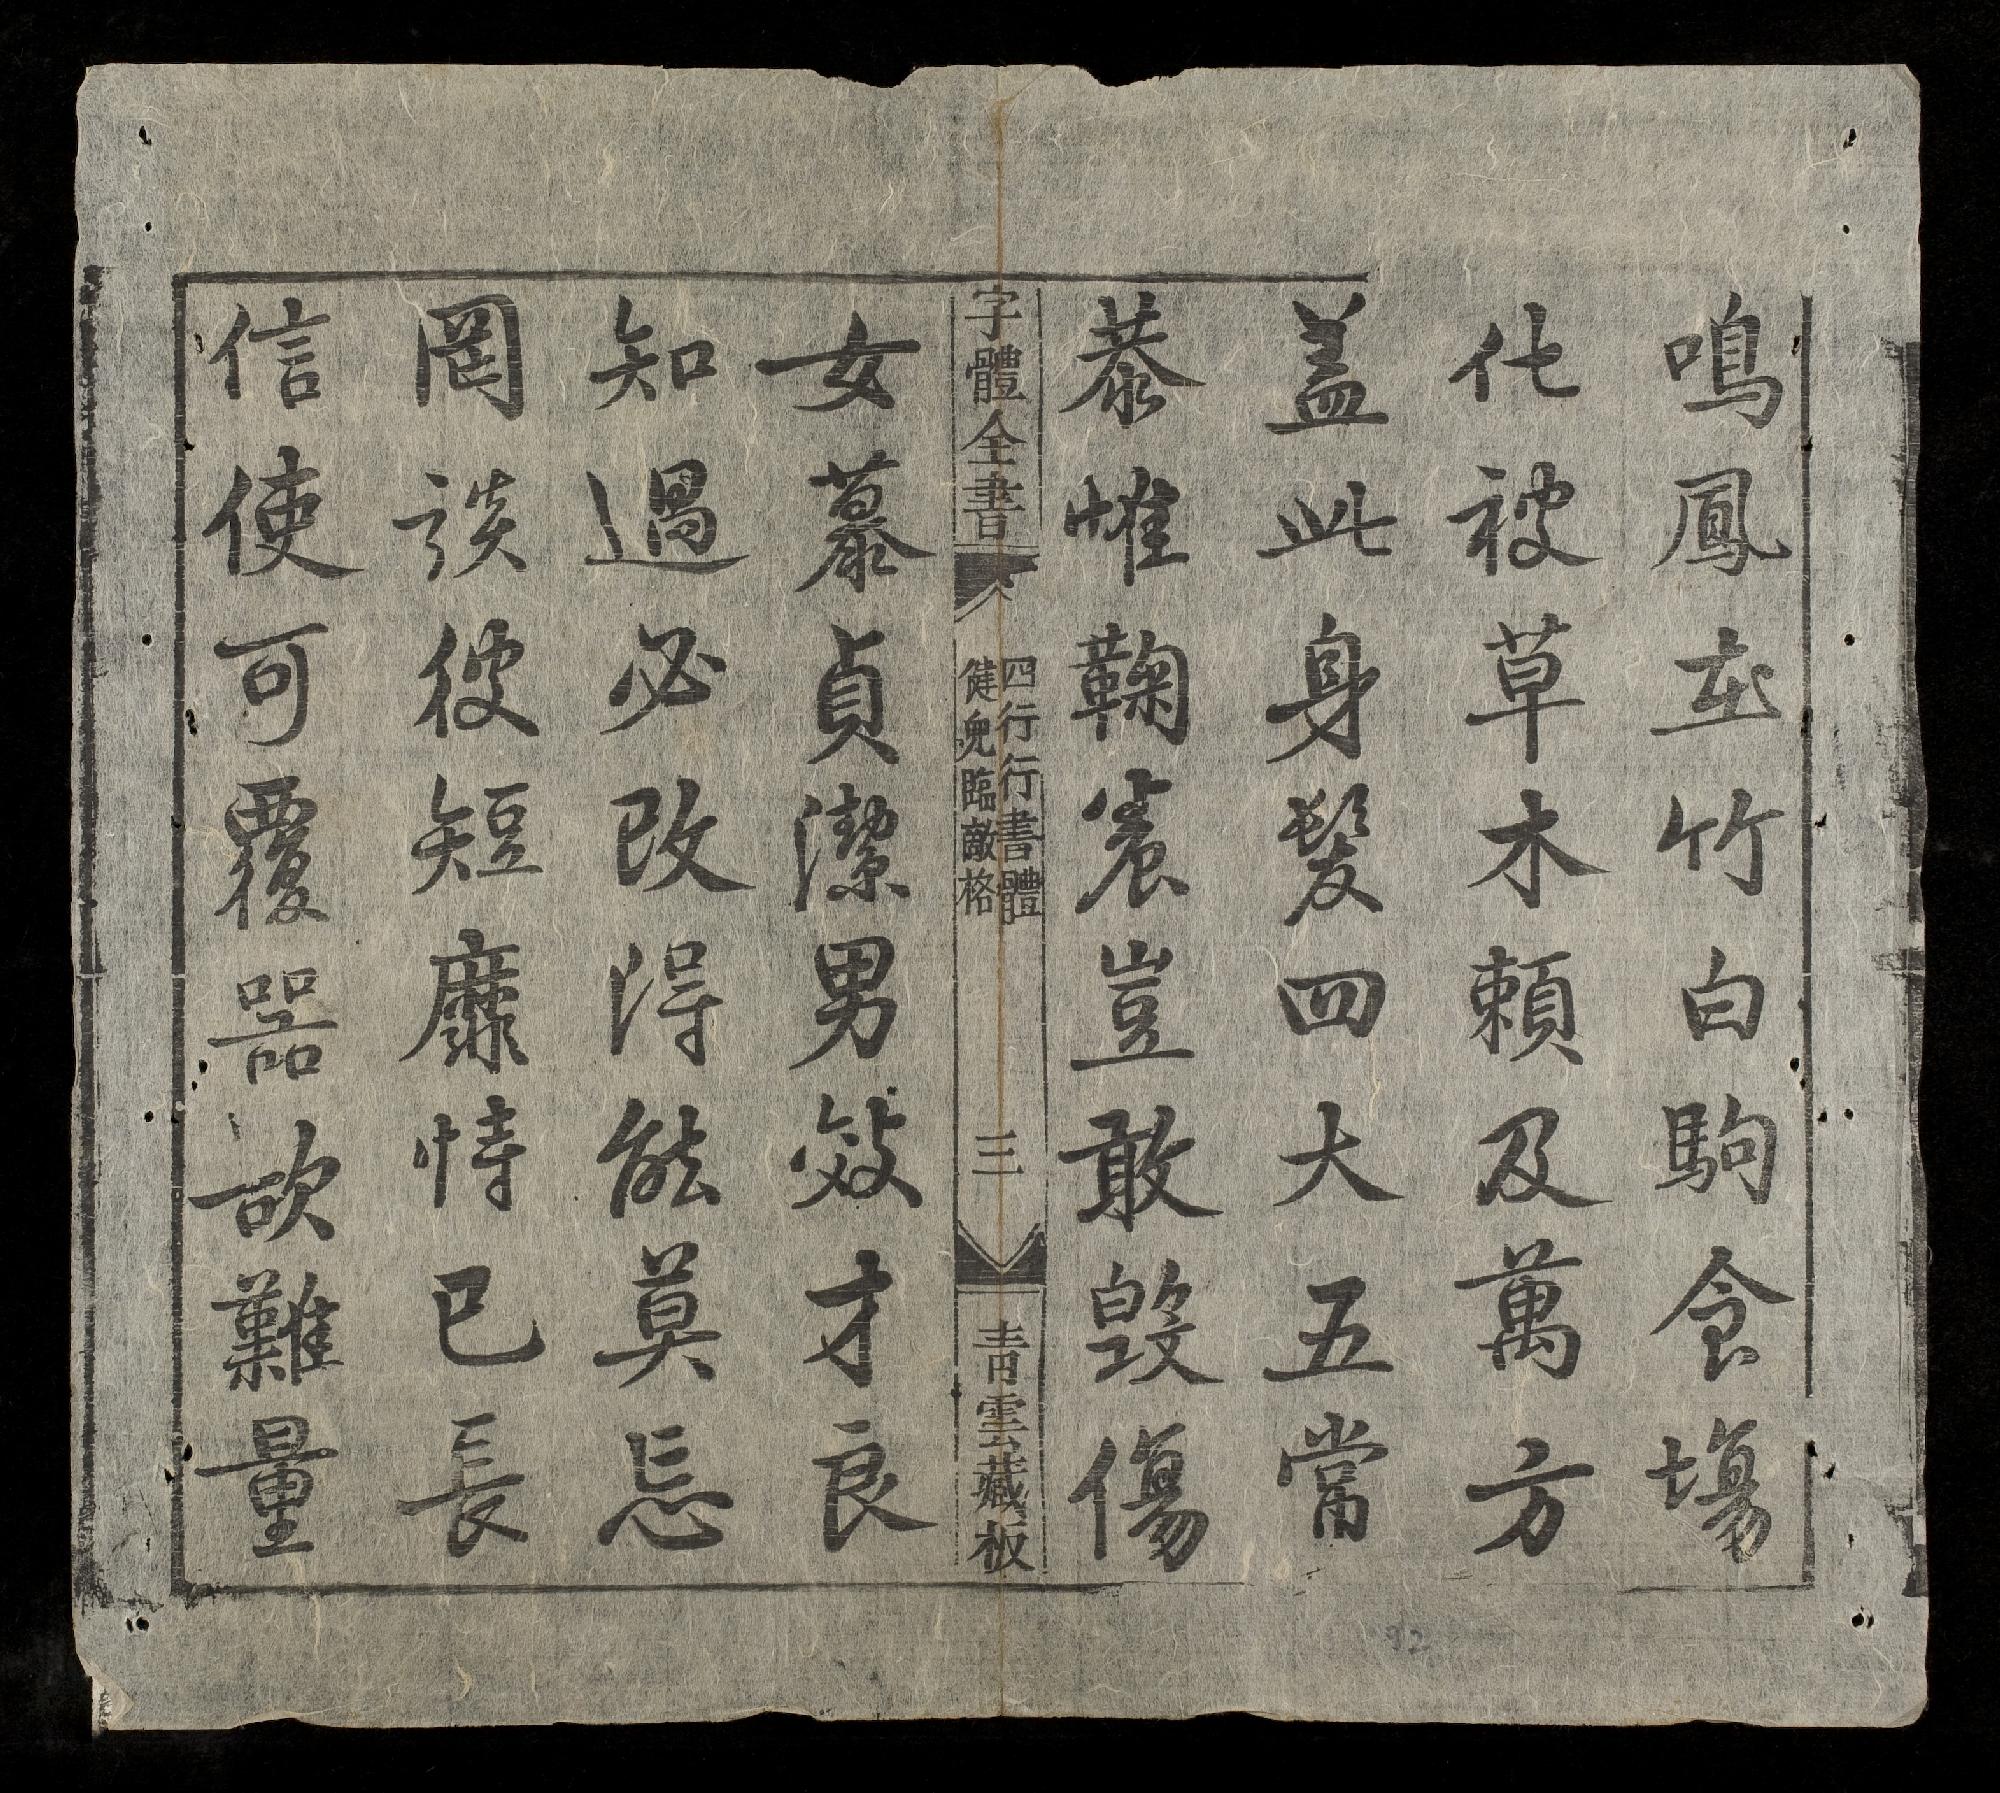 鳴鳳在竹白駒食塲
化被草木頼及萬方
盖此身髮四大五常
恭惟鞠養豈敢毀傷
字體全書
四行行書體
健兒臨敵格
三
青雲藏板
女慕貞潔男效才良
知過必改得能莫忘
罔談彼短靡恃已長
信使可覆器欲難量